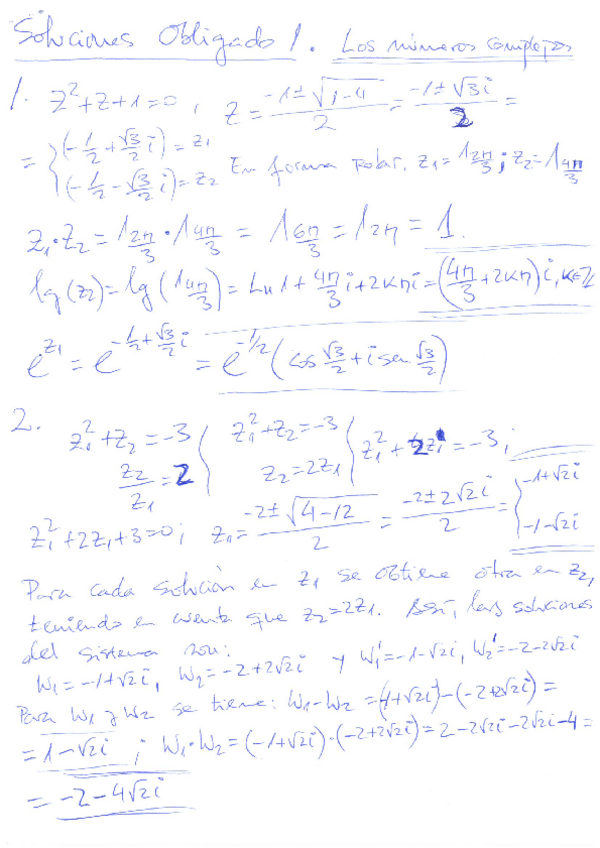 Soluciones Obligado 1. Los números complejos
1. z²+z+1=0; z = (-1±√(1-4))/2 = (-1±√3i)/2 =
= { (-1/2+√3/2 i)=z₁ (-1/2-√3/2 i)=z₂ En forma polar, z₁=1_{2π/3}; z₂=1_{4π/3}
z₁·z₂ = 1_{2π/3}·1_{4π/3} = 1_{6π/3} = 1_{2π} = 1.
lg(z₂)=lg(1_{4π/3})=Ln1+4π/3 i+2kπi=(4π/3+2kπ)i, k∈Z
e^{z₁} = e^{-1/2+√3/2 i} = e^{-1/2}(cos √3/2 + i sen √3/2)
2. z₁²+z₂=-3 z₂/z₁=2 } z₁²+z₂=-3 z₂=2z₁ } z₁²+2z₁=-3;
z₁²+2z₁+3=0; z₁= (-2±√(4-12))/2 = (-2±2√2i)/2 = { -1+√2i -1-√2i
Para cada solución en z₁ se obtiene otra en z₂,
teniendo en cuenta que z₂=2z₁. Así, las soluciones
del sistema son:
W₁=-1+√2i, W₂=-2+2√2i y W₁'=-1-√2i, W₂'=-2-2√2i
Para W₁ y W₂ se tiene: W₁-W₂=(-1+√2i)-(-2+2√2i)=
=1-√2i ; W₁·W₂=(-1+√2i)·(-2+2√2i)=2-2√2i-2√2i-4=
= -2-4√2i